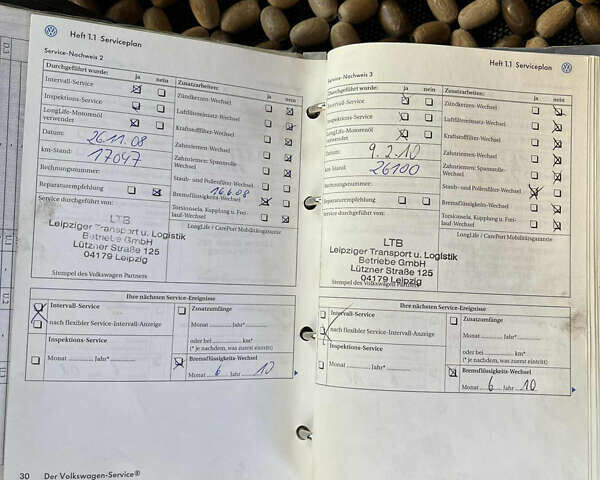 Heft 1.1 Serviceplan
Service-Nachweis 2
Durchgeführt wurde: ja nein
Intervall-Service
Inspektions-Service
LongLife-Motorenöl
verwendet
Datum: 26.11.08
km-Stand: 17047
Rechnungsnummer:
Reparaturempfehlung
Service durchgeführt von:
LTB
Leipziger Transport u. Logistik
Betriebe GmbH
Lützner Straße 125
04179 Leipzig
Stempel des Volkswagen Partners
Zusatzarbeiten: ja nein
Zündkerzen-Wechsel
Luftfiltereinsatz-Wechsel
Kraftstofffilter-Wechsel
Zahnriemen-Wechsel
Zahnriemen: Spannrolle-
Wechsel
Staub- und Pollenfilter-Wechsel
16.6.08
Bremsflüssigkeits-Wechsel
Torsionsela. Kupplung u. Frei-
lauf-Wechsel
LongLife / CarePort Mobilitätsgarantie
Ihre nächsten Service-Ereignisse
Intervall-Service
nach flexibler Service-Intervall-Anzeige
Inspektions-Service
Monat ............ Jahr*......
Zusatzumfänge
Monat ............ Jahr*......
oder bei ............ km*
(* je nachdem, was zuerst eintritt)
Bremsflüssigkeits-Wechsel
Monat 6 Jahr 10
30 Der Volkswagen-Service®
Heft 1.1 Serviceplan
Service-Nachweis 3
Durchgeführt wurde: ja nein
Intervall-Service
Inspektions-Service
LongLife-Motorenöl
verwendet
Datum: 9.2.10
km-Stand: 26100
Rechnungsnummer:
Reparaturempfehlung
Service durchgeführt von:
LTB
Leipziger Transport u. Logistik
Betriebe GmbH
Lützner Straße 125
04179 Leipzig
Stempel des Volkswagen Partners
Zusatzarbeiten: ja nein
Zündkerzen-Wechsel
Luftfiltereinsatz-Wechsel
Kraftstofffilter-Wechsel
Zahnriemen-Wechsel
Zahnriemen: Spannrolle-
Wechsel
Staub- und Pollenfilter-Wechsel
Bremsflüssigkeits-Wechsel
Torsionsela. Kupplung u. Frei-
lauf-Wechsel
LongLife / CarePort Mobilitätsgarantie
Ihre nächsten Service-Ereignisse
Intervall-Service
nach flexibler Service-Intervall-Anzeige
Inspektions-Service
Monat ............ Jahr*......
Zusatzumfänge
Monat ............ Jahr*......
oder bei ............ km*
(* je nachdem, was zuerst eintritt)
Bremsflüssigkeits-Wechsel
Monat 6 Jahr 10